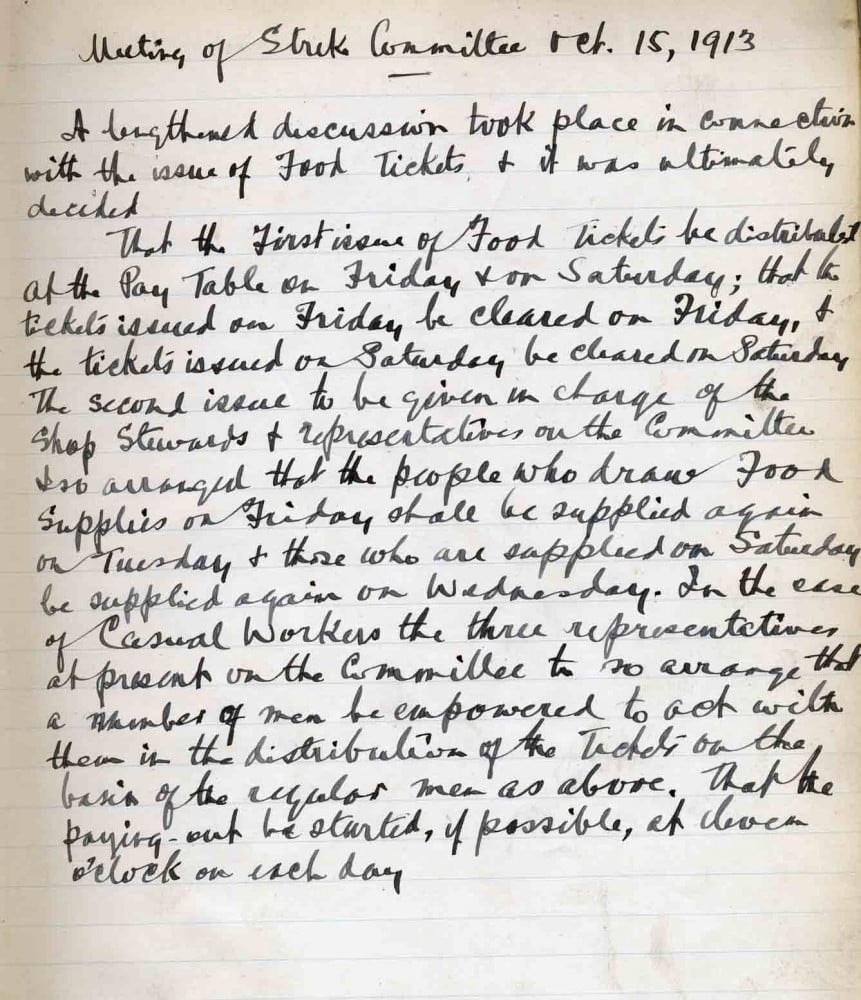 Meeting of Strike Committee Oct. 15, 1913
A lengthened discussion took place in connection
with the issue of Food Tickets, & it was ultimately
decided
That the First issue of Food Tickets be distributed
at the Pay Table on Friday & on Saturday; that the
tickets issued on Friday be cleared on Friday, &
the tickets issued on Saturday be cleared on Saturday
The second issue to be given in charge of the
Shop Stewards & representatives on the Committee
& so arranged that the people who draw Food
Supplies on Friday shall be supplied again
on Tuesday & those who are supplied on Saturday
be supplied again on Wednesday. In the case
of Casual Workers the three representatives
at present on the Committee to so arrange that
a number of men be empowered to act with
them in the distribution of the Tickets on the
basis of the regular men as above. That the
paying-out be started, if possible, at eleven
o'clock on each day